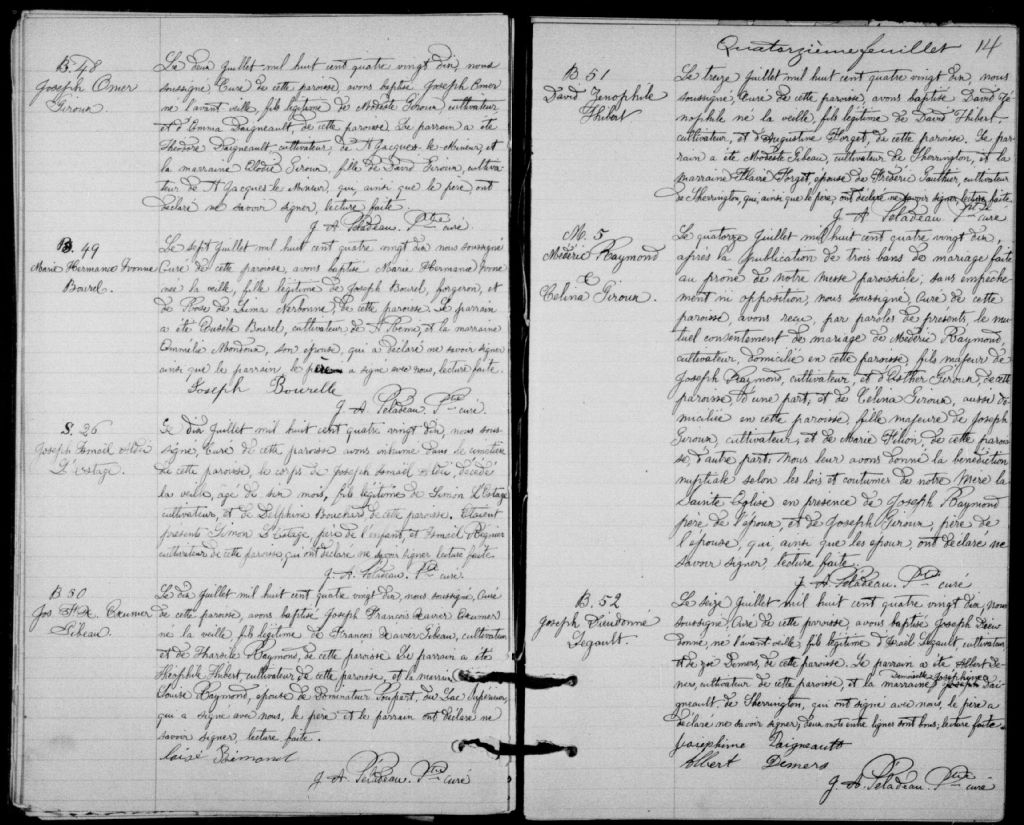 B. 48
Joseph Omer
Giroux
Le deux juillet mil huit cent quatre vingt dix, nous
soussigné Curé de cette paroisse, avons baptisé Joseph Omer
né l'avant veille, fils légitime de Modeste Giroux cultivateur
et d'Emma Daigneault, de cette paroisse. Le parrain a été
Théodère Daigneault cultivateur, de St Jacques le Mineur, et
la marraine Elodie Giroux, fille de David Giroux, cultiva
teur de St Jacques le Mineur, qui, ainsi que le père, ont
déclaré ne savoir signer, lecture faite.
J. A. Peladeau. Ptre curé.
B. 49
Marie Hermance Ivonne
Bourel.
Le sept juillet mil huit cent quatre vingt dix nous soussigné
Curé de cette paroisse, avons baptisé Marie Hermance Ivonne
née la veille, fille légitime de Joseph Bourel, forgeron, et
de Rose de Lima Narbonne, de cette paroisse. Le parrain
a été Eusèbe Bourel, cultivateur de St Remi, et la marraine
Mondoux, son épouse, qui a déclaré ne savoir signer
ainsi que le parrain, le père a signé avec nous, lecture faite.
Joseph Bourelle
J. A. Peladeau. Ptre curé.
S. 26
Joseph Ismaël Aldéi
L'estage.
Le dix juillet mil huit cent quatre vingt dix, nous sous-
signé, Curé de cette paroisse avons inhumé dans le cimetière
de cette paroisse, le corps de Joseph Ismaël Aldéi, décédé
la veille, âgé de six mois, fils légitime de Simon L'Estage
cultivateur, et de Delphine Bouchard de cette paroisse. Etaient
présents Simon L'Estage, père de l'enfant, et Ismaël Régnier
cultivateur de cette paroisse, qui ont déclaré ne savoir signer lecture faite
J. A. Peladeau. Ptre curé.
B 50
Jos. F. X.
Gibeau.
Le dix juillet mil huit cent quatre vingt dix, nous soussigné, Curé
de cette paroisse, avons baptisé Joseph François Xavier
né la veille, fils légitime de François Xavier Gibeau, cultivateur
et de Tharsile Raymond, de cette paroisse. Le parrain a été
Théophile Hubert, cultivateur de cette paroisse, et la marraine
Louise Raymond, épouse de Dominateur Poupart, du Lac Supérieur,
qui a signé avec nous, le père et le parrain ont déclaré ne
savoir signer, lecture faite.
J. A. Peladeau. Ptre curé
Quatorzième feuillet 14
B 51
David Zénophile
Hubert
Le treize juillet mil huit cent quatre vingt dix, nous
soussigné, Curé de cette paroisse, avons baptisé David Zé-
nophile né la veille, fils légitime de David Hubert,
cultivateur, et d'Augustine Forget, de cette paroisse. Le par-
rain a été Modeste Gibeau, cultivateur de Sherrington, et la
marraine Forget, épouse de Fréderic Gauthier, cultivateur
de Sherrington, qui, ainsi que le père, ont déclaré ne savoir signer, lecture faite.
J. A. Peladeau. Ptre curé
M. 5
Médéric Raymond
&
Celina Giroux.
Le quatorze juillet mil huit cent quatre vingt dix,
après la publication de trois bans de mariage faite
au prône de notre messe paroissiale, sans empêche
ment ni opposition, nous soussigné, Curé de cette
paroisse, avons reçu, par paroles de présents, le mu
tuel consentement de mariage de Médéric Raymond,
cultivateur, domicilié en cette paroisse, fils majeur de
Joseph Raymond, cultivateur, et d'Esther Giroux, de cette
paroisse d'une part, et de Célina Giroux, aussi do-
miciliée en cette paroisse, fille majeure de Joseph
Giroux, cultivateur, et de Marie Filion, de cette parois
se, d'autre part. Nous leur avons donné la bénédiction
nuptiale selon les lois et coutumes de notre Mère la
Sainte Eglise en présence de Joseph Raymond
père de l'époux, et de Joseph Giroux, père de
l'épouse, qui, ainsi que les époux, ont déclaré ne
savoir signer, lecture faite.
J. A. Peladeau. Ptre curé
B. 52
Joseph Dieudonné
Legault.
Le seize juillet mil huit cent quatre vingt dix, nous
soussigné, Curé de cette paroisse, avons baptisé Joseph Dieu
donné, né l'avant veille, fils légitime d'Israël Legault, cultivateur
et de Zoé Demers, de cette paroisse. Le parrain a été Albert De-
mers, cultivateur de cette paroisse, et la marraine Demoiselle Josephine Dai-
gneault, de Sherrington, qui ont signé avec nous, le père a
déclaré ne savoir signer, deux mots entre lignes sont bons, lecture faite.
Josephine Daigneault
Albert Demers
J. A. Peladeau. Ptre curé